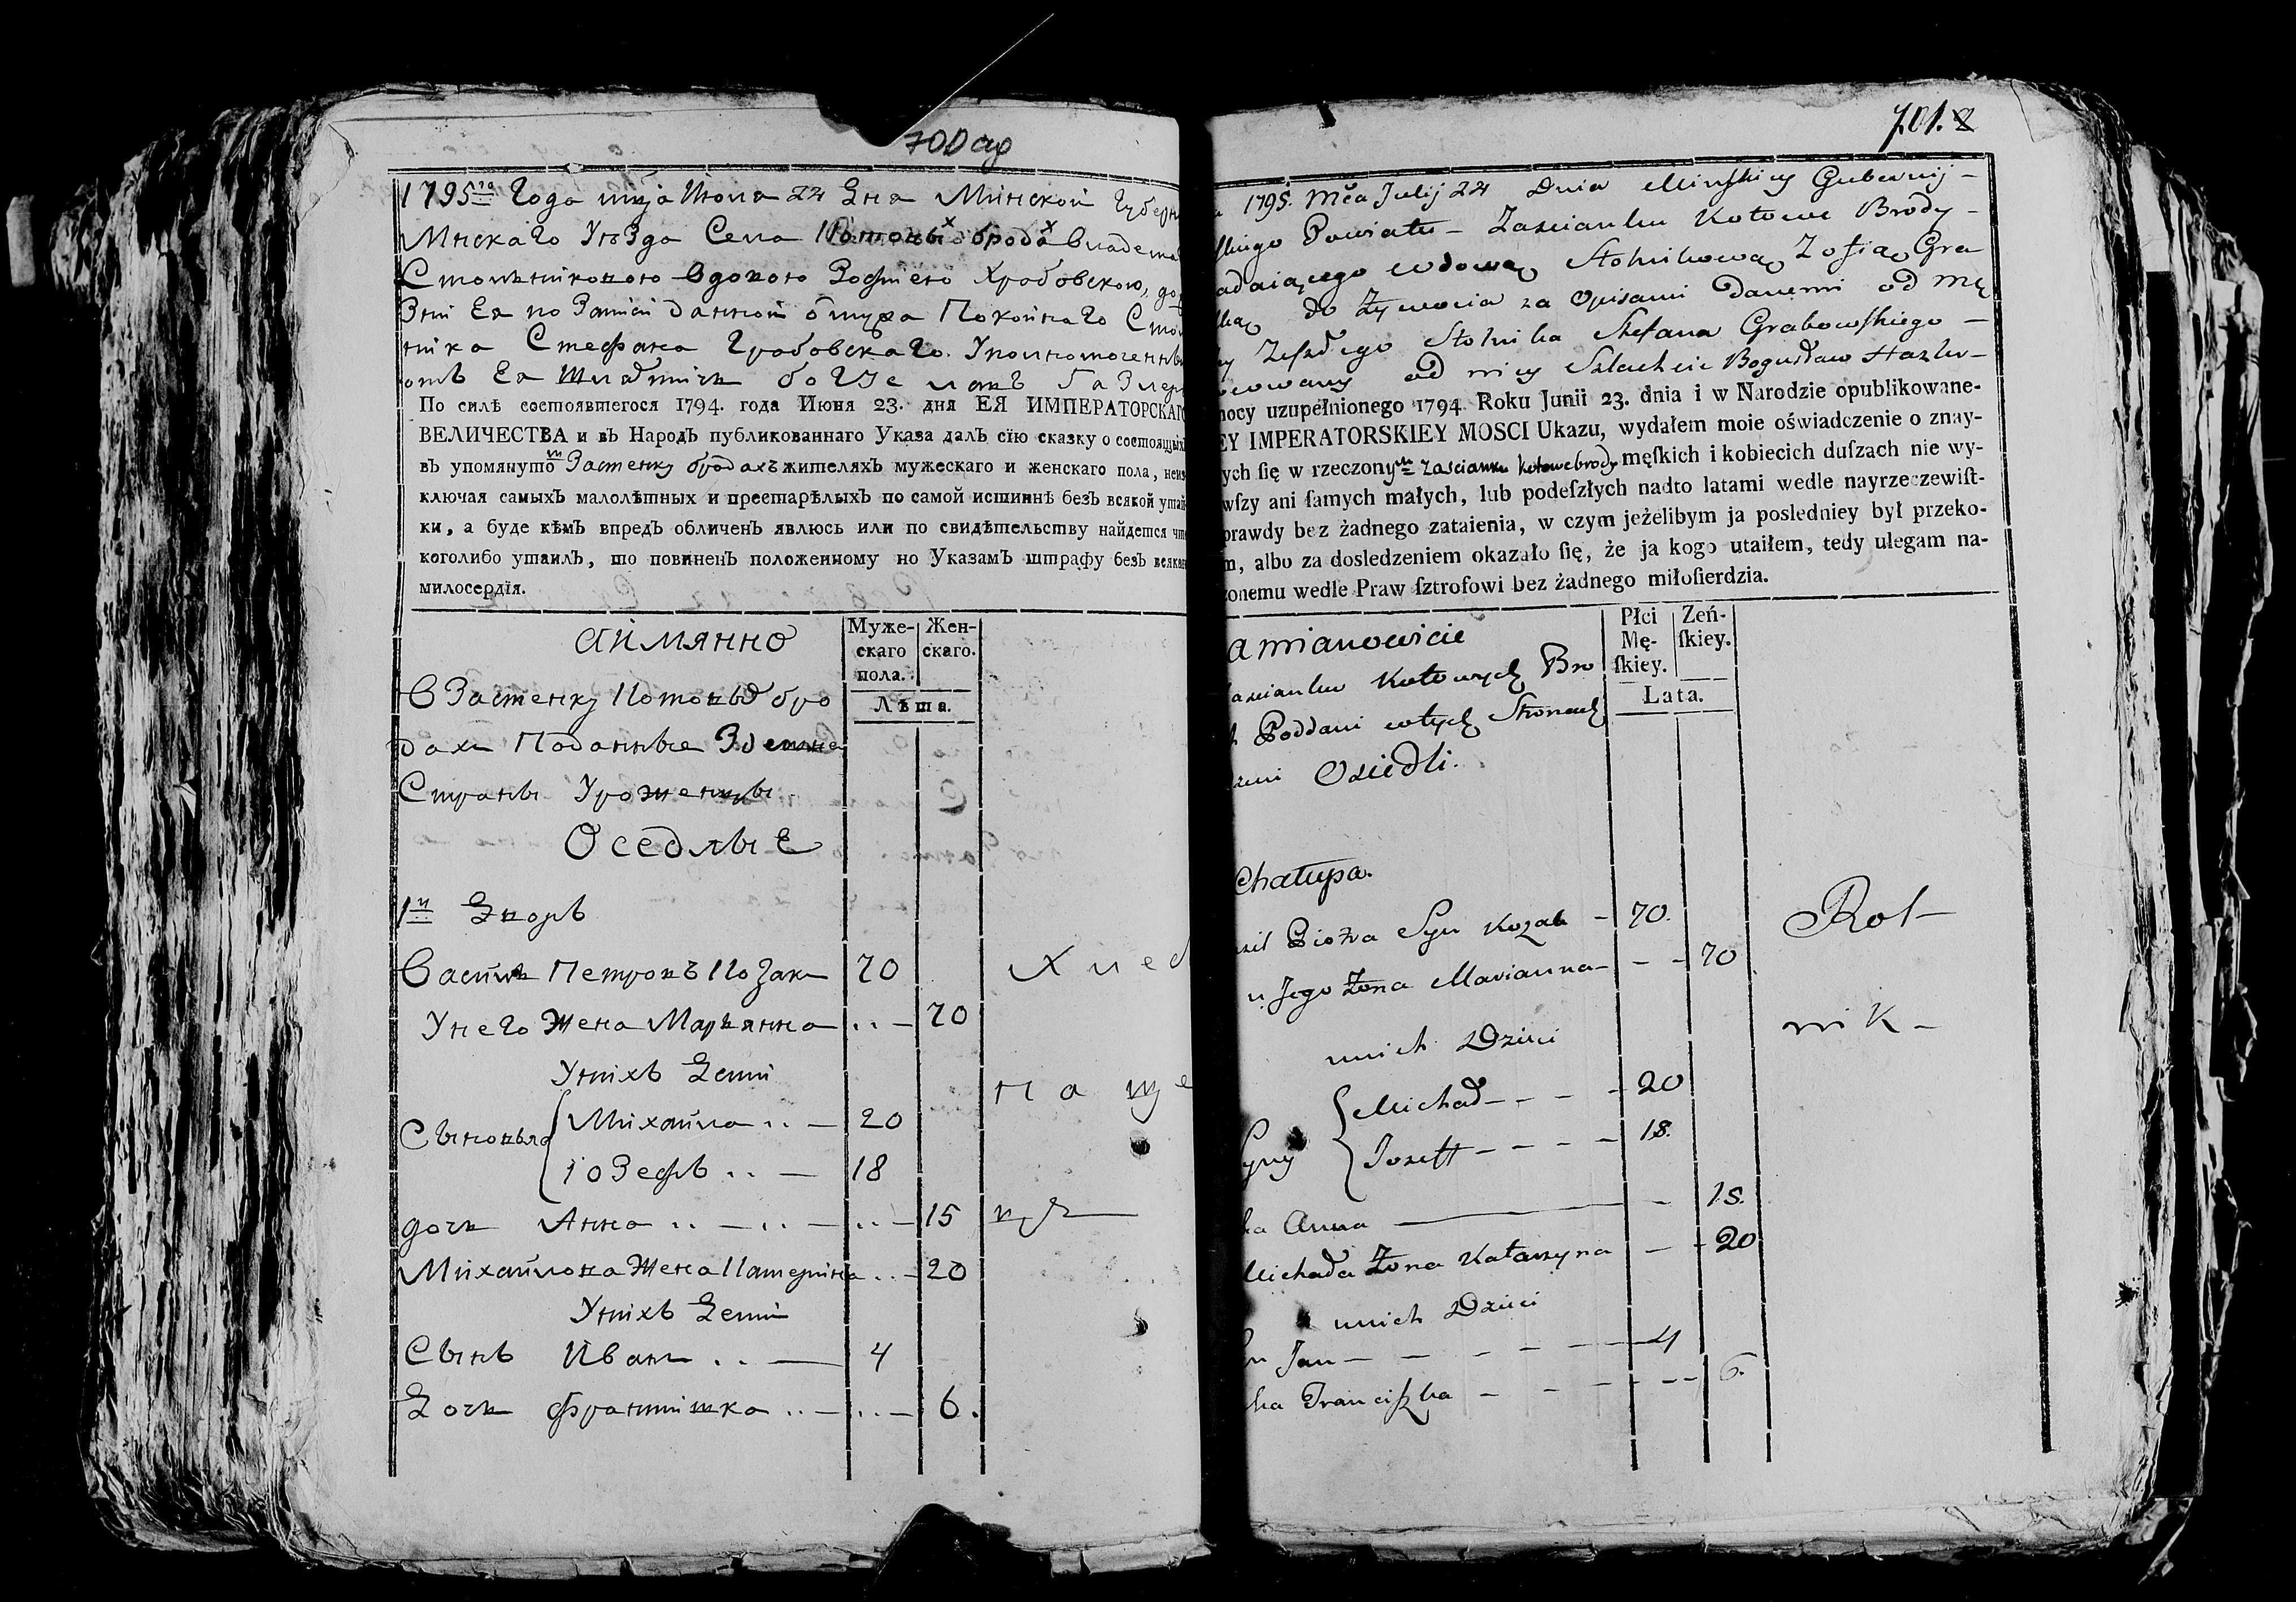 700 об
1795го Года мца Июля 24 Дня Минской Губерн
Минскаго Уезда Села Котовых бродах Владем
Столниковою Вдовою Зофиею Храбовскою, до
Зни Ея по Записи данной от мужа Покойнаго Стол
ника Стефана Грабовскаго. Уполномоченны
отъ Ея Шляхтичь
По силѣ состоявшегося 1794. года Июня 23. дня ЕЯ ИМПЕРАТОРСКАГО
ВЕЛИЧЕСТВА и въ Народъ публикованнаго Указа далъ сїю сказку о состоящыхъ
въ упомянутом Застенку бродахъ жителяхъ мужескаго и женскаго пола, неис
ключая самыхъ малолѣтныхъ и престарѣлыхъ по самой истиннѣ безъ всякой утай
ки, а буде кѣмъ впредъ обличенъ явлюсь или по свидѣтельству найдется что
коголибо утаилъ, то повиненъ положенному по Указамъ штрафу безъ всякаго
милосердїя.
аимянно
Муже-
скаго
пола.
Жен-
скаго.
Лѣта.
В Застенку Котовых бро
дахъ Поданные Здешне
Страны Уроженцы
Оседлые
1й Дворъ
Василь Петровъ Козакъ 70
Унего Жена Марьянна 70
Унихъ Дети
Сыновья Михайла 20
Іозефъ 18
дочь Анна 15
Михайлова Жена Катерина 20
Унихъ Дети
Сынъ Иванъ 4
Дочь Франтишка 6.
Хлеб
паше
цъ
701. 2
1795. Mca Julij 24 Dnia Minskiey Gubernij
skiego Powiatu Zascianku Kotowe Brody
adaiącego wdową Stolnikową Zofią Gra
ską do Żywocia za opisami danemi od Mę
Zeszłego Stolnika Stefana Grabowskiego
cowany od niey Szlachcic Bogusław Hazler
mocy uzupełnionego 1794 Roku Junii 23. dnia i w Narodzie opublikowane-
EY IMPERATORSKIEY MOSCI Ukazu, wydałem moie oświadczenie o znay-
ych ſię w rzeczonym zascianku kotowebrody męſkich i kobiecich duſzach nie wy-
wſzy ani ſamych małych, lub podeſzłych nadto latami wedle nayrzeczewiſt-
prawdy bez żadnego zataienia, w czym jeżelibym ja posledniey był przeko-
m, albo za dosledzeniem okazało ſię, że ja kogo utaiłem, tedy ulegam na-
zonemu wedle Praw ſztrofowi bez żadnego miłoſierdzia.
amianowicie
Płci
Mę-
ſkiey.
Zeń-
ſkiey.
Lata.
ascianku Kotowych Bro
h Poddani wtych Stronach
zeni Osiedli.
Chałupa.
asil Piotra Syn Kozak 70.
u Jego Żona Marianna 70
unich Dzieci
Syny Michał 20
Jozeff 18.
ka Anna 15.
Michała Żona Katarzyna 20
unich Dzieci
yn Jan 4
ka Franciszka 6.
Rol-
nik